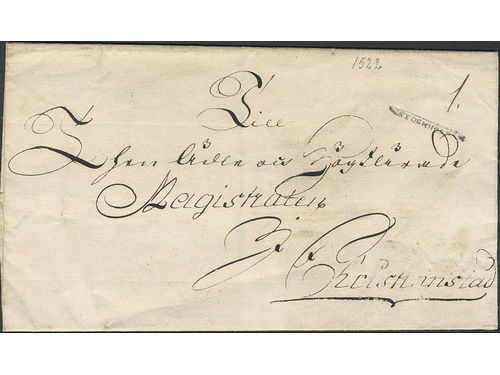 1522
1.
STOCKHOLM
Till
Then Ädle och Höglärde
Magistraten
I Christinstad